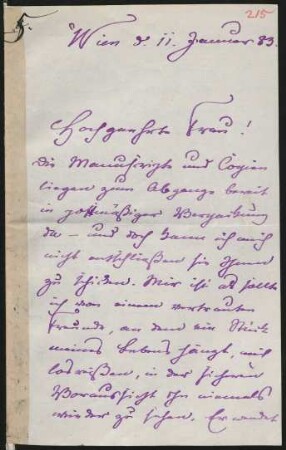 5.
215
Wien d. 11. Januar 83.
Hochgeehrte Frau!
Die Manuscripte und Copien
liegen zum Abgange bereit
in postmäßiger Verpackung
da – und doch kann ich mich
nicht entschließen sie Ihnen
zu schicken. Mir ist als sollte
ich von einem vertrauten
Freunde, an dem ein Stück
meines Lebens hängt, mich
losreißen, in der sicheren
Voraussicht ihn niemals
wieder zu sehen. Erwidet